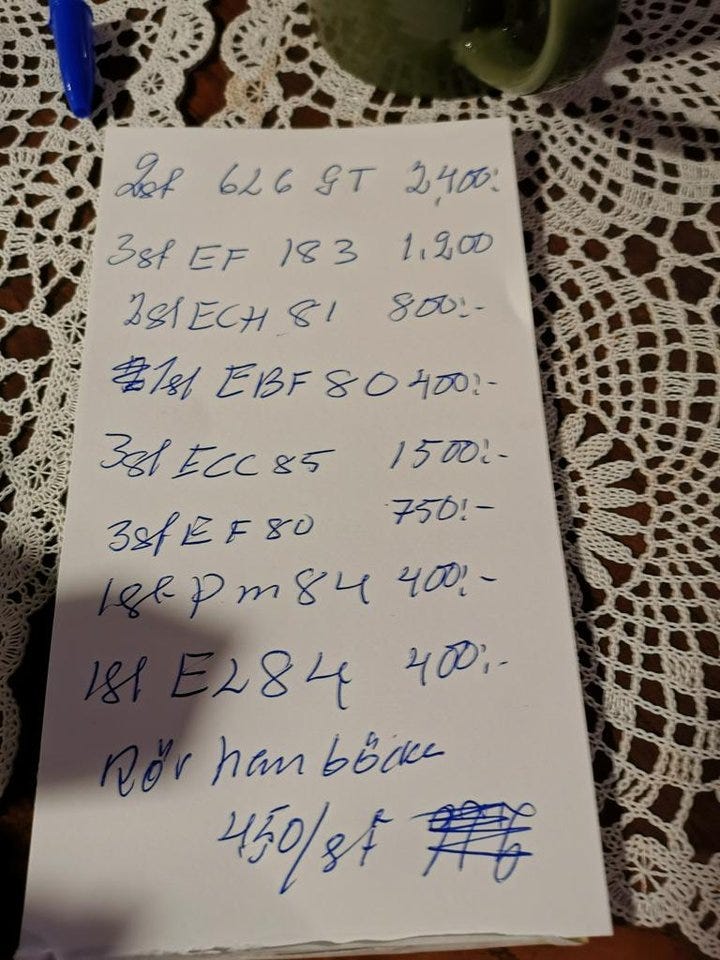 2st 6L6 GT 2,400:
3st EF 183 1.200
2st ECH 81 800:-
1st EBF 80 400:-
3st ECC 85 1500:-
3st EF 80 750:-
1st Pm 84 400:-
1st EL 84 400:-
Rör
450/st